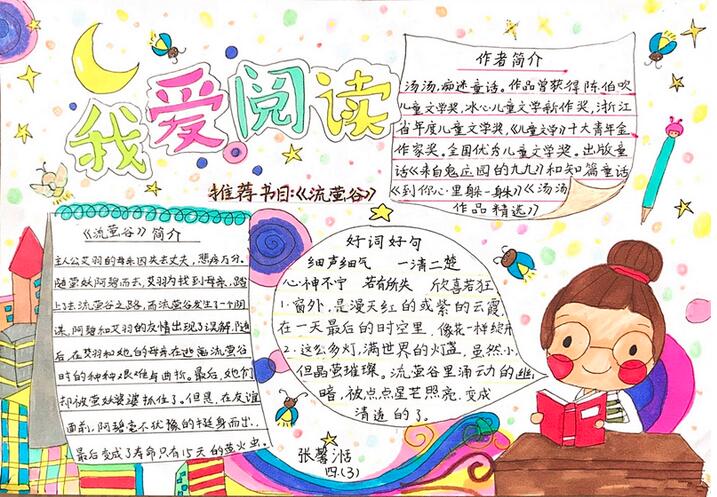 我爱阅读
推荐书目:《流萤谷》
作者简介
汤汤,痴迷童话。作品曾获得陈伯吹
儿童文学奖,冰心儿童文学新作奖,浙江
省年度儿童文学奖,《儿童文学》十大青年金
作家奖。全国优秀儿童文学奖。出版童
话《来自鬼庄园的九九》和短篇童话
《到你心里躲一躲》《汤汤
作品精选》
《流萤谷》简介
主人公艾羽的母亲因失去丈夫,悲痛万分。
随萤妖阿碧而去,艾羽为找到母亲,踏
上去流萤谷之路,而流萤谷发生了一个阴
谋,阿碧和艾羽的友情出现了误解,随
后,在艾羽和她的母亲在逃离流萤谷
时的种种艰难与曲折。最后,她们
却被萤妖婆婆抓住了。但是,在友谊
面前,阿碧毫不犹豫的挺身而出,
最后变成了寿命只有15天的萤火虫。
好词好句
细声细气 一清二楚
心神不宁 若有所失 欣喜若狂
1.窗外,是漫天红的或紫的云霞,
在一天最后的时空里,像花一样绽开
2.这么多灯,满世界的灯盏,虽然小,
但晶莹璀璨。流萤谷里涌动的幽
暗,被点点星芒照亮,变成
清透的了。
张馨湉
四.(3)